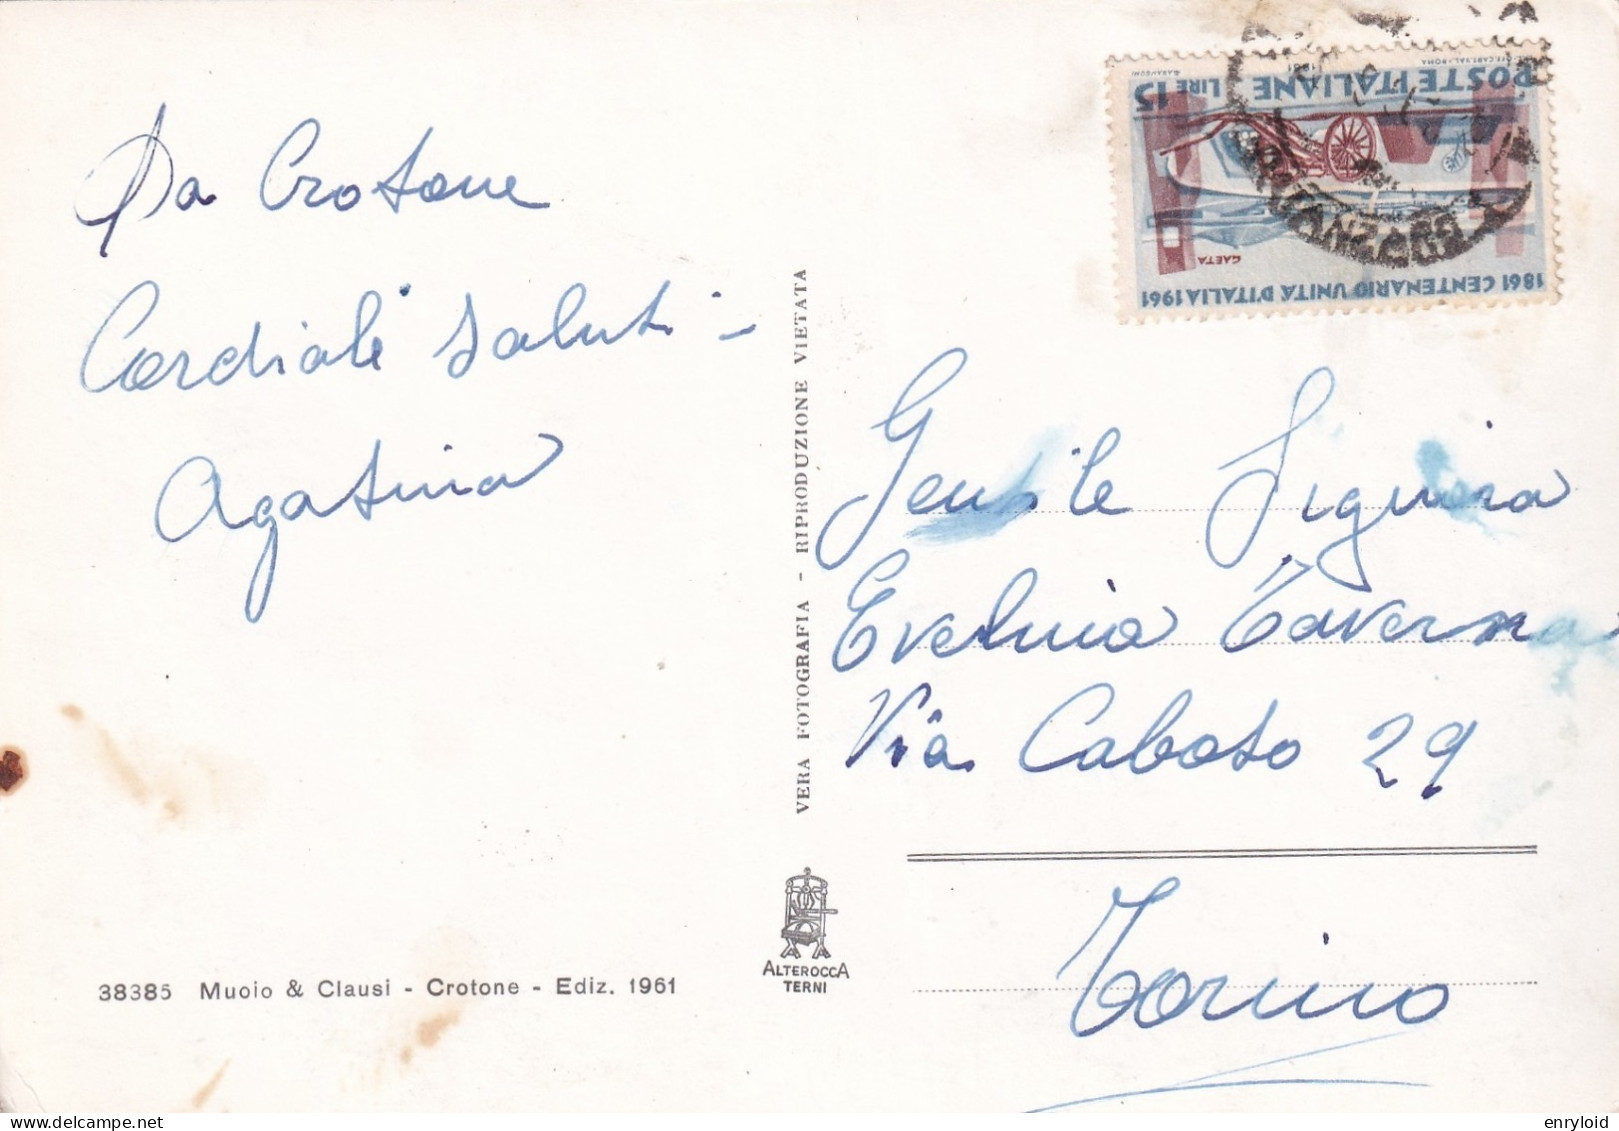 Da Crotone
Cordiali saluti -
Agatina
38385 Muoio & Clausi - Crotone - Ediz. 1961
VERA FOTOGRAFIA - RIPRODUZIONE VIETATA
ALTEROCCA
TERNI
POSTE ITALIANE LIRE 15
1961
GAETA
1861 CENTENARIO UNITÀ D'ITALIA 1961
Gentile Signora
Evelina Taverna
Via Caboto 29
Torino
enryloid